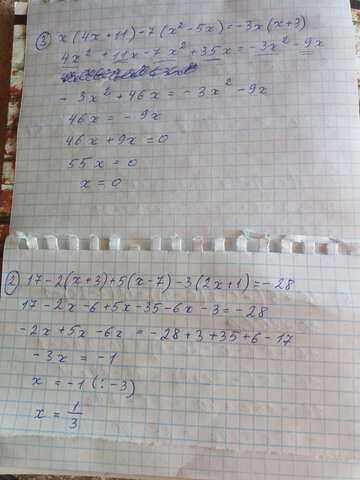 ③ x(4x+11)-7(x²-5x)=-3x(x+3)
4x²+11x-7x²+35x=-3x²-9x
-3x²+46x=-3x²-9x
46x=-9x
46x+9x=0
55x=0
x=0
② 17-2(x+3)+5(x-7)-3(2x+1)=-28
17-2x-6+5x-35-6x-3=-28
-2x+5x-6x=-28+3+35+6-17
-3x=-1
x=-1(:-3)
x=1/3